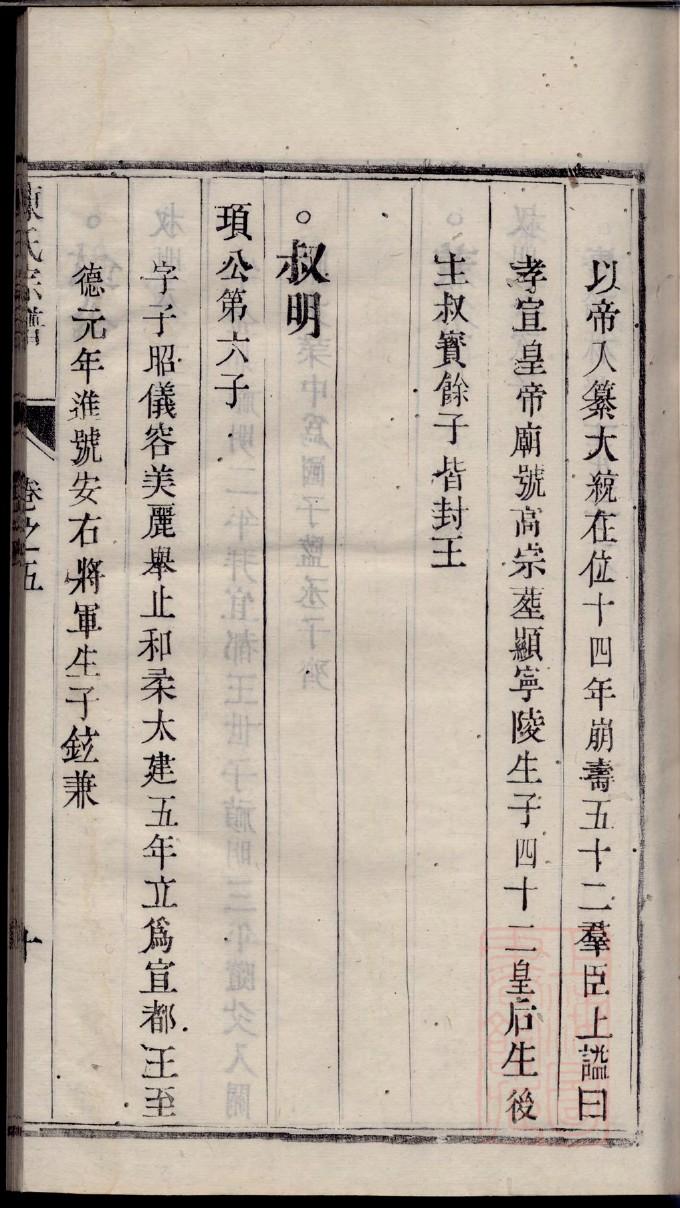 以帝入纂大統在位十四年崩壽五十二羣臣上諡曰
孝宣皇帝廟號高宗塟顯寧陵生子四十二皇后生後
主叔寳餘子皆封王
。叔明
頊公第六子
字子昭儀容美麗舉止和柔太建五年立爲宣都王至
德元年進號安右將軍生子鉉兼
陳氏宗譜
卷之五
十